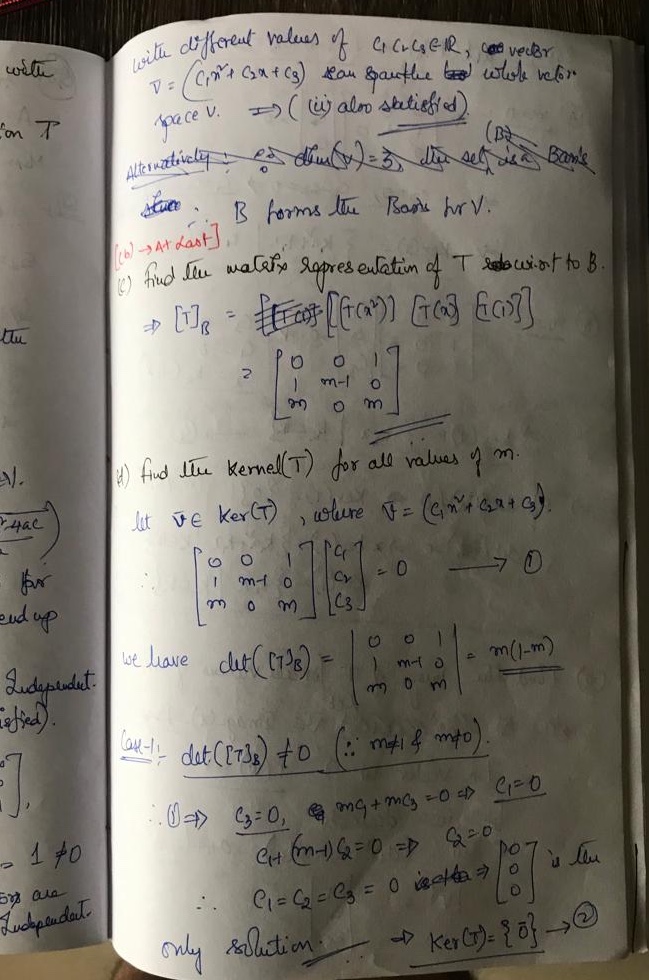 with
on T
the
4ac
for
end up
Independent.
isfied).
= 1 ≠ 0
are
Independent.
with different values of C₁ C₂ C₃ ∈ ℝ, vector
v̄ = (C₁x² + C₂x + C₃) can span the whole vector
space V. ⇒ ( (ii) also satisfied).
Alternatively : dim(V) = 3, the set (B) is a Basis
∴ B forms the Basis for V.
[(b) → At Last]
(c) find the matrix representation of T w.r.t to B.
⇒ [T]_B = [[T(x²)] [T(x)] [T(1)]]
= [0 0 1
1 m-1 0
m 0 m]
d) find the Kernel(T) for all values of m.
let v̄ ∈ Ker(T) , where v̄ = (C₁x² + C₂x + C₃).
∴ [0 0 1; 1 m-1 0; m 0 m] [C₁; C₂; C₃] = 0 → ①
we have det([T]_B) = |0 0 1; 1 m-1 0; m 0 m| = m(1-m)
Case-1:- det([T]_B) ≠ 0 (∵ m≠1 & m≠0).
∴ ① ⇒ C₃=0, mC₁ + mC₃ = 0 ⇒ C₁=0
C₁+ (m-1)C₂ = 0 ⇒ C₂=0
∴ C₁ = C₂ = C₃ = 0 ⇒ [0; 0; 0] is the
only solution. ⇒ Ker(T) = {0̄} → ②